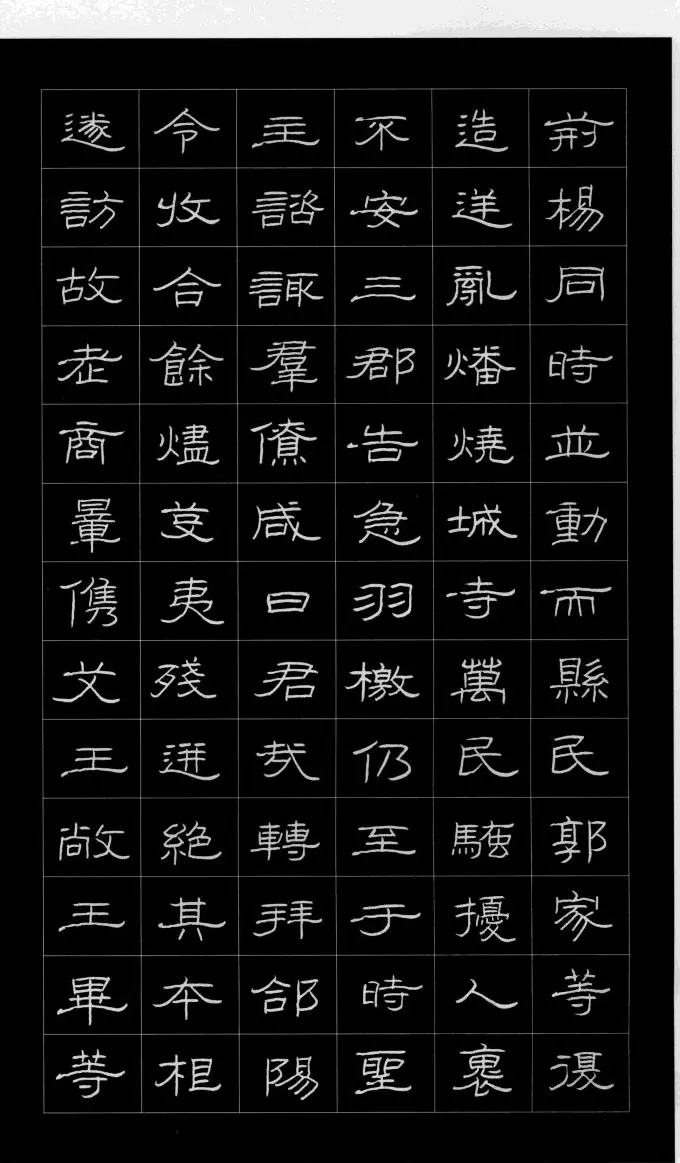 荊楊同時並動而縣民郭家等復
造逆亂燔燒城寺萬民騷擾人裹
不安三郡告急羽檄仍至于時聖
主諮諏羣僚咸曰君哉轉拜郃陽
令收合餘燼芟夷殘迸絕其本相
遂訪故老商暈儁艾王敞王畢等